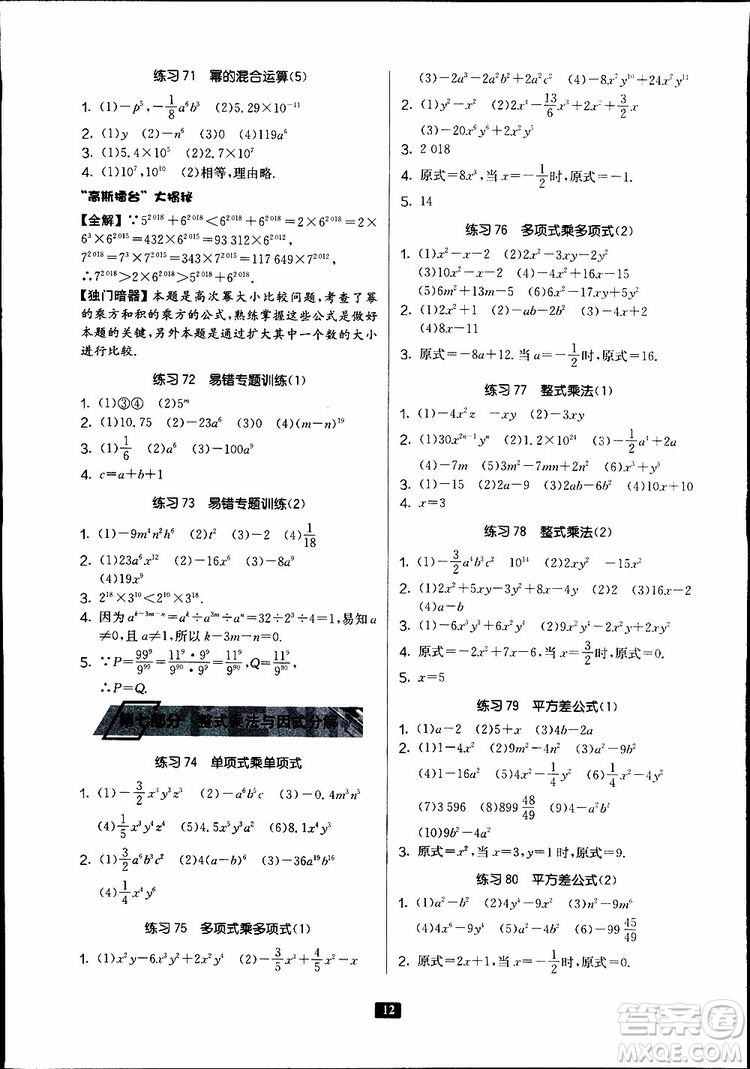 练习 71 幂的混合运算(5)
1. (1)-p⁵,-1/8a⁶b³ (2)5.29×10⁻¹¹
2. (1)y (2)-n⁶ (3)0 (4)119a⁶
3. (1)5.4×10⁵ (2)2.7×10⁵
4. (1)10⁷,10¹⁰ (2)相等,理由略.
“高斯擂台”大揭秘
【全解】∵5²⁰¹⁸+6²⁰¹⁸<6²⁰¹⁸+6²⁰¹⁸=2×6²⁰¹⁸=2×
6³×6²⁰¹⁵=432×6²⁰¹⁵=93 312×6²⁰¹²,
7²⁰¹⁸=7³×7²⁰¹⁵=343×7²⁰¹⁵=117 649×7²⁰¹².
∴7²⁰¹⁸>2×6²⁰¹⁸>5²⁰¹⁸+6²⁰¹⁸.
【独门暗器】本题是高次幂大小比较问题,考查了幂
的乘方和积的乘方的公式,熟练掌握这些公式是做
本题的关键,另外本题是通过扩大其中一个数的大小
进行比较.
练习 72 易错专题训练(1)
1. (1)③④ (2)5ᵐ
2. (1)10.75 (2)-23a⁶ (3)0 (4)(m-n)¹⁹
3. (1)1/6 (2)-a⁵ (3)-100a⁹
4. c=a+b+1
练习 73 易错专题训练(2)
1. (1)-9m⁴n²h⁶ (2)t² (3)-8a⁹ (4)1/18
2. (1)23a⁶x¹² (2)-3a³ (3)-8a⁶-8a⁵
(4)19x⁹
3. 2¹⁸×3¹⁰<2¹⁰×3¹⁵.
4. 因为aᵏ⁻³ᵐ⁻ⁿ=aᵏ÷a³ᵐ÷aⁿ=32÷2³÷4=1,易知a
≠0,且a≠1,所以k-3m-n=0.
5. ∵P=99⁹/9⁹⁹=11⁹·9⁹/9⁹⁹=11⁹·9⁹/9⁹·9⁹⁰=11⁹/9⁹⁰,
∴P=Q.
第七部分 整式乘法与因式分解
练习 74 单项式乘单项式
1. (1)-3/2x³y³z³ (2)-a⁶b²c (3)-0.4m³n⁵
(4)1/5x³y³ (5)4.5x³y⁹ (6)8.1x⁴y³
2. (1)3/2a⁶b³c² (2)4(a-b)⁵ (3)-36a¹⁹b¹⁶
(4)1/4x⁴y⁶
练习 75 多项式乘多项式(1)
1. (1)x²y-6x³y²+2x²y³ (2)-3/5x³-3/5x²-x
(3)-2a³-2a²+2a (4)-8x⁷y¹⁰+24x⁷y⁸
2. (1)y²-x² (2)2x⁴-13/6x³+2x²+3/2x
(3)-20x⁶y⁶+8x³y³
3. 2 018
4. 原式=8x³,当x=-1/2时,原式=-1.
5. 14
练习 76 多项式乘多项式(2)
1. (1)x²-x-2 (2)2x²-5xy-3y²
(3)10x²-x-2 (4)a²-2ab+b²
(5)6m²+13m-5 (6)2x²-17xy+8y²
2. (1)2x²+1 (2)-ab-6b² (3)2x-40
(4)8x-11
3. 原式=-8a+12. 当a=-1/2时,原式=16.
练习 77 整式乘法(1)
1. (1)-4x²z -xy (2)-3xy
2. (1)30x²ⁿ⁻¹yⁿ (2)1.2×10²⁴ (3)-1/2a²+2a
(4)-7m (5)-4m²n-5n² (6)x³+y³
3. (1)-15 (2)2a-9 (3)2ab-6b² (4)10x+10
4. x=3
练习 78 整式乘法(2)
1. (1)-3/2a⁴b³c² 10¹⁴ (2)20x²y³ -15x²
2. (1)2x²+1 (2)-9x²y+4xy² (3)2a²+a
(4)a-b
3. (1)-6x³y³+6y⁴ (2)9x²y²-2xy-6x²
4. 原式=-6x+3,当x=1/2时,原式=0.
5. x=5
练习 79 平方差公式(1)
1. (1)a-2 (2)5+x (3)4b-a (4)-m-n
2. (1)1-4x² (2)9m²-n² (3)a²-25
(4)1-16a² (5)-1/4x²+4y² (6)1/4x²-9y²
(7)3 596 (8)899 48/49 (9)a²+2ab+b²
(10)9b²-4a²
3. 原式=x²,当x=-1,y=1时,原式=1.
练习 80 平方差公式(2)
1. (1)a²-b² (2)y⁴-9x² (3)1/4x²-1/9y²
(4)4x⁶-9y⁴ (5)-3y²-4y (6)-99 45/49
2. 原式=2x+1,当x=-1/2时,原式=0.
12